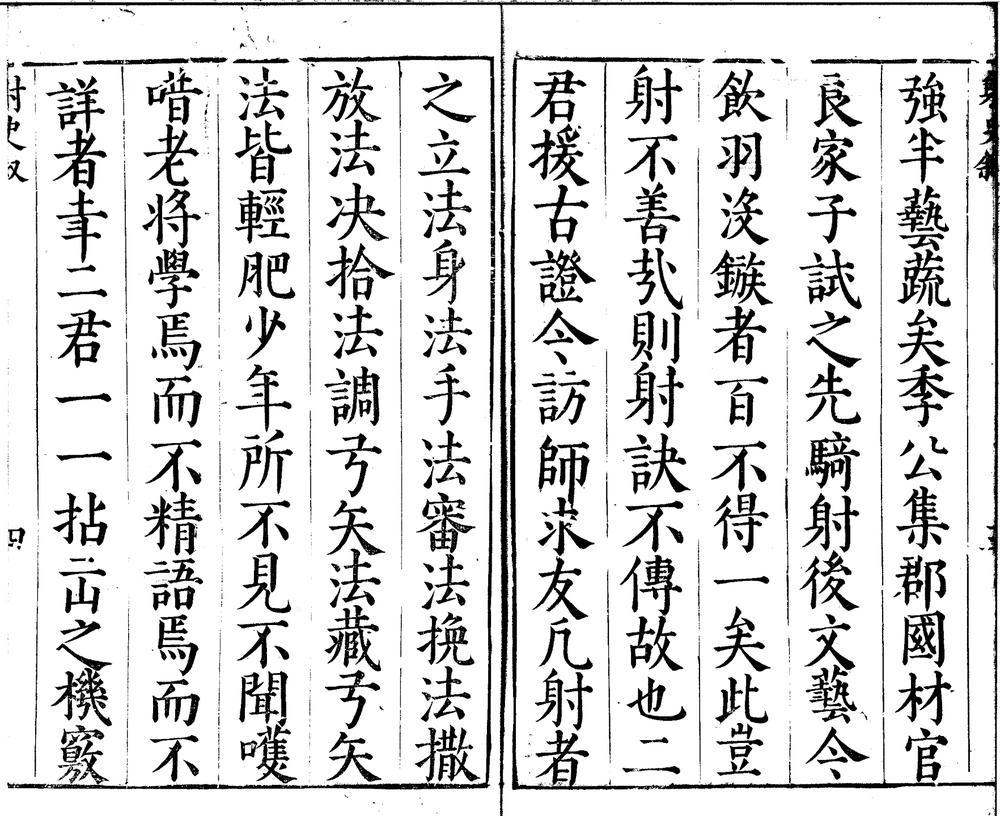 強半藝蔬矣季公集郡國材官
良家子試之先騎射後文藝今
飲羽沒鏃者百不得一矣此豈
射不善㢤則射訣不傳故也二
君援古證今訪師求友凡射者
之立法身法手法審法挽法撒
放法决拾法調弓矢法藏弓矢
法皆輕肥少年所不見不聞嚄
唶老將學焉而不精語焉而不
詳者幸二君一一拈出之機竅
射史叙
四